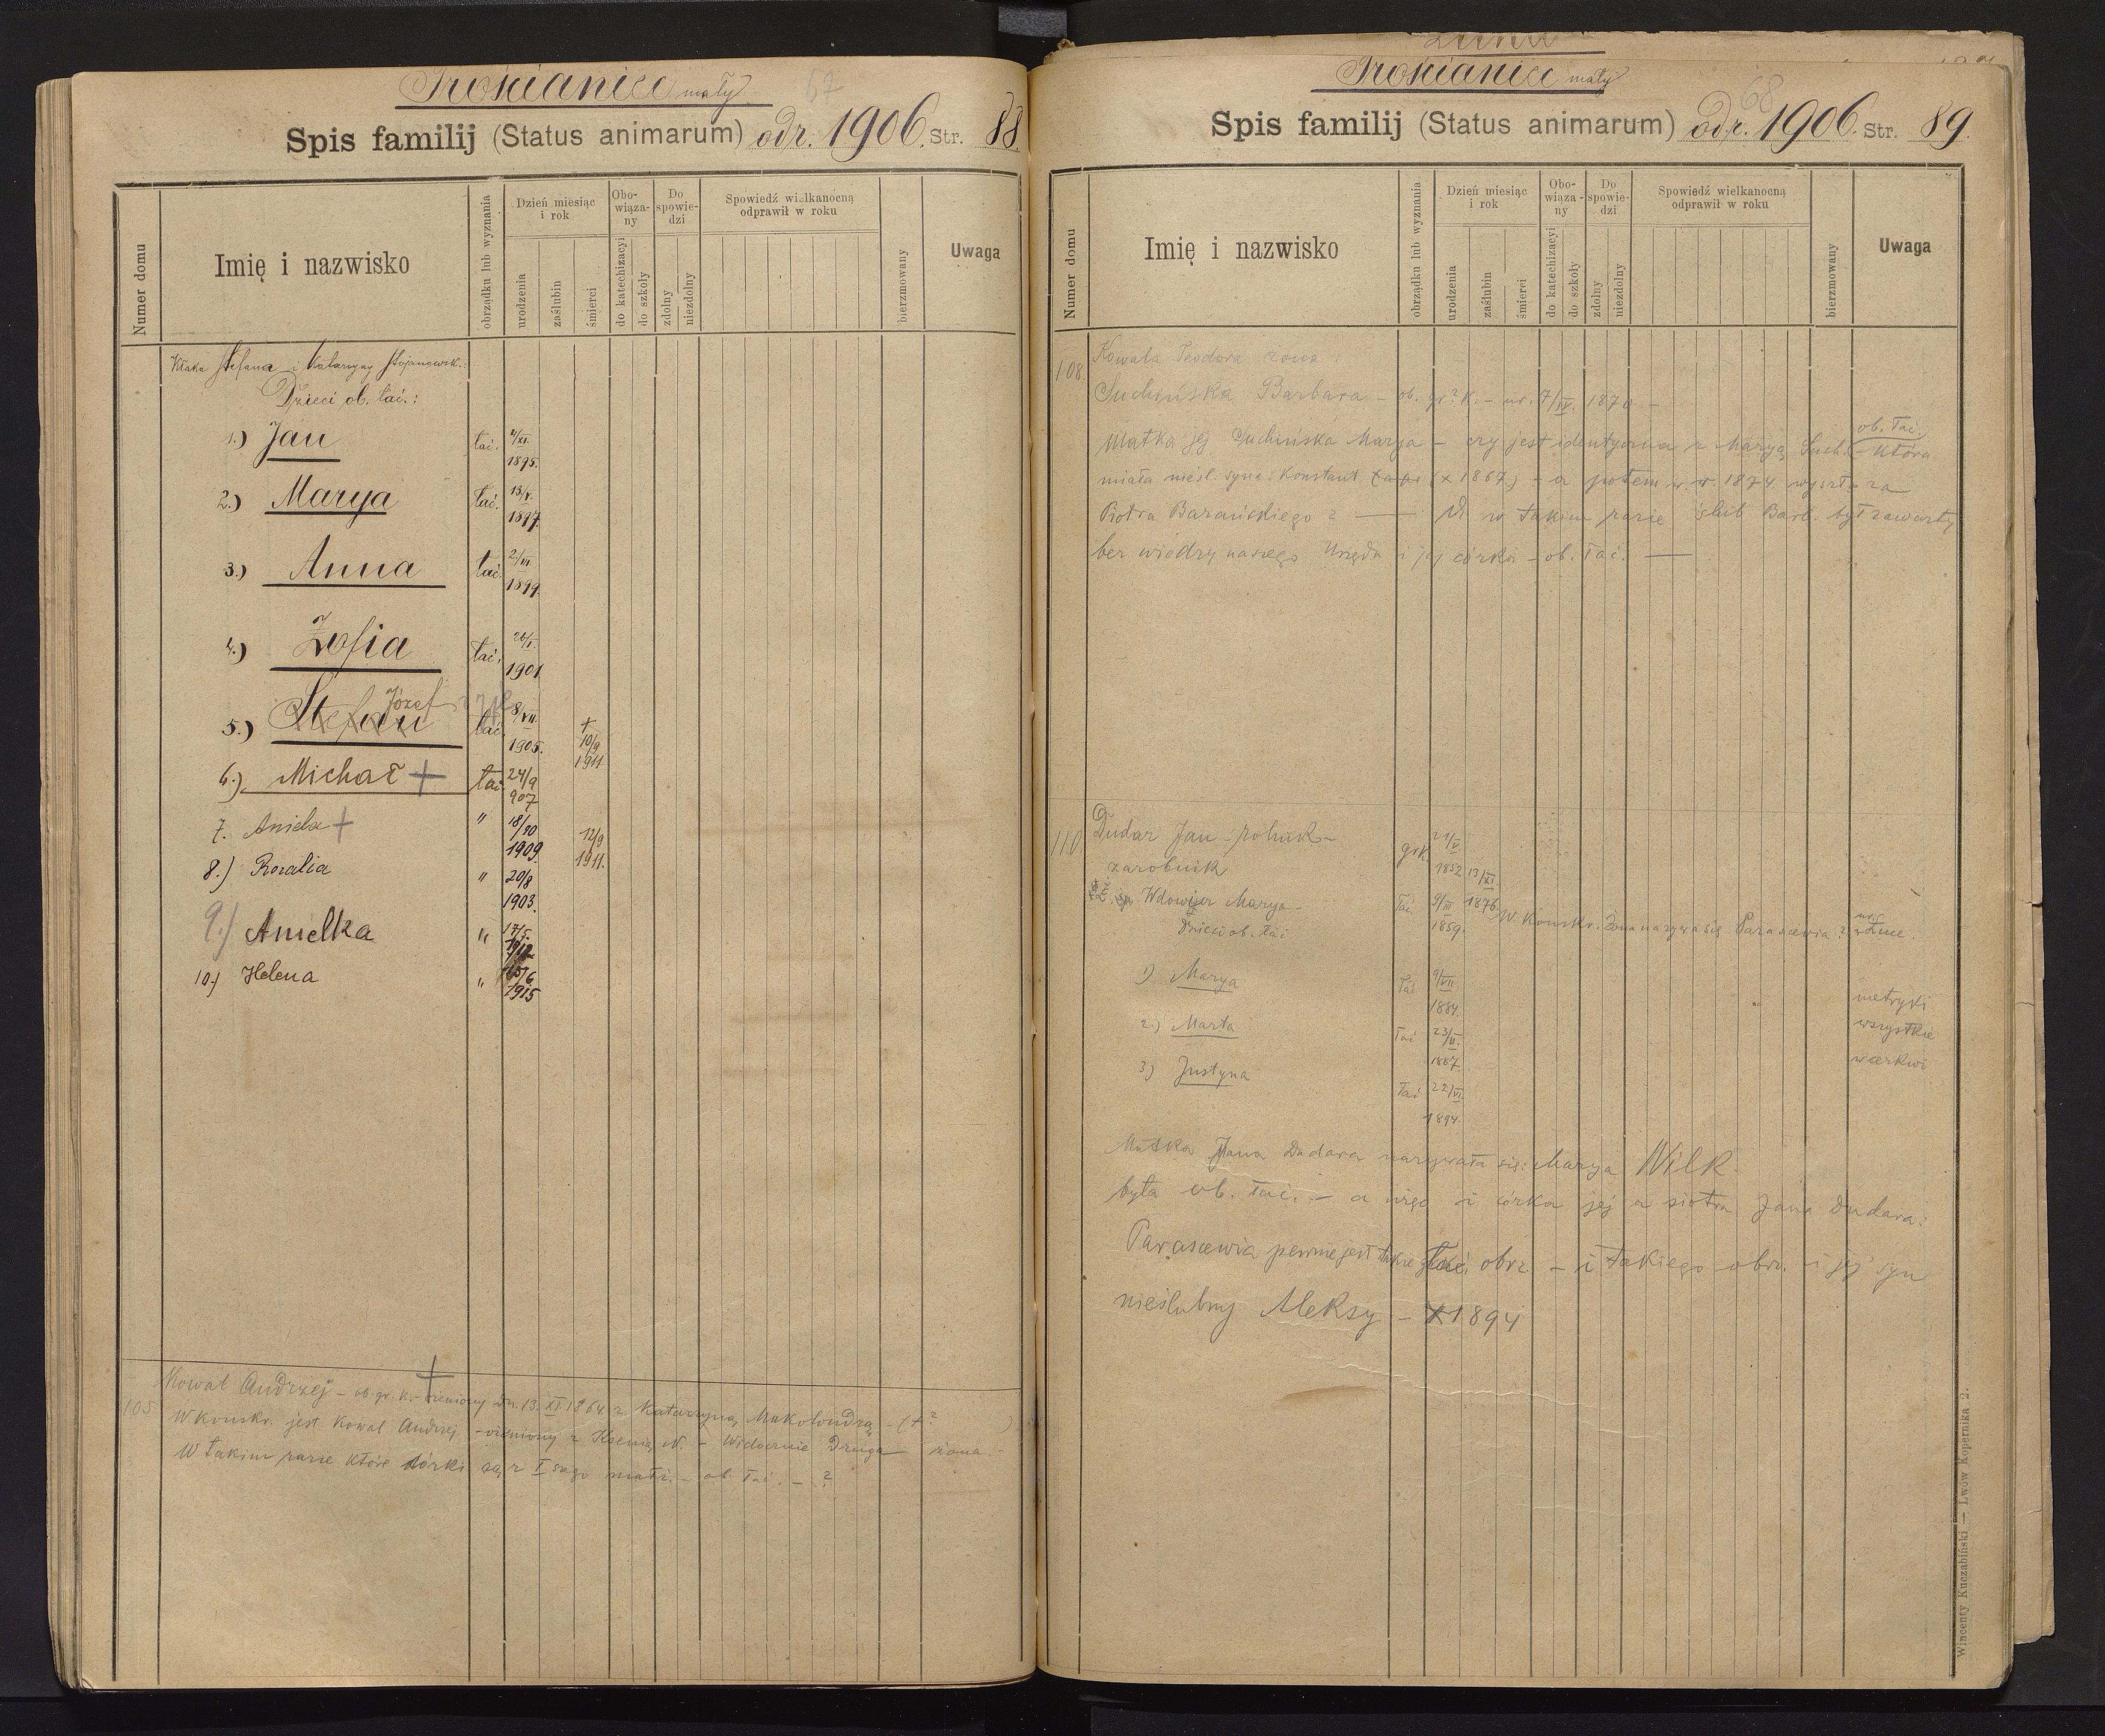 Trościaniec mały 67
Spis familij (Status animarum) od r. 1906. Str. 88.
Numer domu
Imię i nazwisko
obrządku lub wyznania
Dzień miesiąc i rok
urodzenia
zaślubin
śmierci
Obowiązany
do katechizacyi
do szkoły
Do spowiedzi
zdolny
niezdolny
Spowiedź wielkanocną odprawił w roku
bierzmowany
Uwaga
Stefana i Katarzyny
Dzieci ob. łać.:
1.) Jan łać. 4/XI. 1895.
2.) Marya łać. 13/V. 1897.
3.) Anna łać. 2/III 1899.
4.) Zofia łać. 26/I. 1901.
5.) Stefan Józef łać. 8/VII. 1905. † 10/9 1911
6.) Michał + łać. 24/9 907
7. Aniela + " 1909. 12/9 1911.
8.) Rozalia " 20/8 1903.
9.) Anielka " 17/5.
10.) Helena " 1915
105 Kowal Andrzej – ob. gr. k. – żeniony dn. 13. XI. 1864 z Katarzyną – (+?)
W konskr. jest Kowal Andrzej – ożeniony z Ksenią N. – Widocznie Druga żona. –
W takim razie które córki są z I szego małż. – ob. łać. – ?
Trościaniec mały 68
Spis familij (Status animarum) od r. 1906. Str. 89.
Numer domu
Imię i nazwisko
obrządku lub wyznania
Dzień miesiąc i rok
urodzenia
zaślubin
śmierci
Obowiązany
do katechizacyi
do szkoły
Do spowiedzi
zdolny
niezdolny
Spowiedź wielkanocną odprawił w roku
bierzmowany
Uwaga
108 Kowala Teodora żona:
Suchińska Barbara – ob. gr. k. – ur. 7/IV. 1870. –
Matka jej Suchińska Marya – czy jest identyczna z Maryą Such. (ob. łać. – która
miała nieśl. syna: Konstant (x 1867) – a potem w r. 1874 wyszła za
Piotra Barańskiego? — W takim razie ślub Barb. był zawarty
bez wiedzy naszego Urzędu i jej córki – ob. łać. —
110 Dudar Jan – rolnik – gr.k. 21/V. 1852 13/XI. 1876
zarobnik
Wdowizr Marya – łać. 9/III 1859. W konskr. żona nazywa się Parascewia?
Dzieci ob. łać
1) Marya łać 9/VII 1884. metryki
2.) Marta łać 23/II. 1887. wszystkie
3) Justyna łać 22/VI. 1894. w cerkwi
Matka Jana Dudara nazywała się: Marya Wilk
była ob. łać. – a więc i córka jej a siostra Jana Dudara:
Parascewia pewnie jest także łać. obrz – i takiego obrz. i jej syn
nieślubny Aleksy – x 1894
Wincenty Kuczabiński — Lwów Kopernika 2.